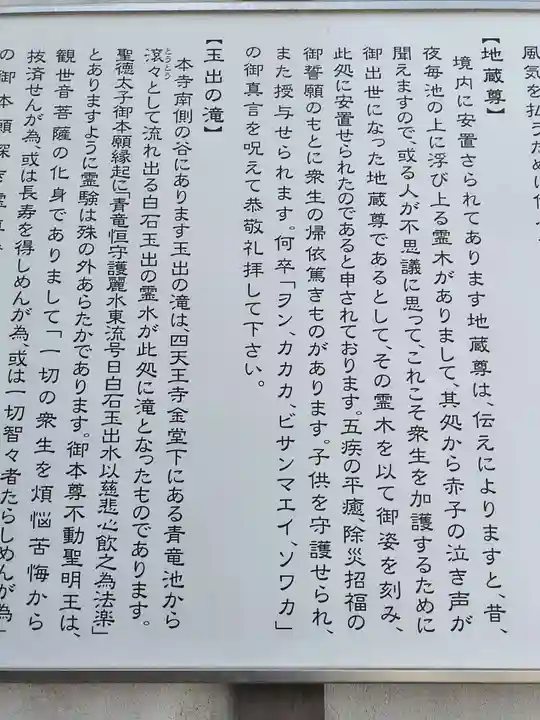 風気を払うために
【地蔵尊】
境内に安置さられてあります地蔵尊は、伝えによりますと、昔、
夜毎池の上に浮び上る霊木がありまして、其処から赤子の泣き声が
聞えますので、或る人が不思議に思って、これこそ衆生を加護するために
御出世になった地蔵尊であるとして、その霊木を以て御姿を刻み、
此処に安置せられたのであると申されております。五疾の平癒、除災招福の
御誓願のもとに衆生の帰依篤きものがあります。子供を守護せられ、
また授与せられます。何卒「ヲン、カカカ、ビサンマエイ、ソワカ」
の御真言を呪えて恭敬礼拝して下さい。
【玉出の滝】
本寺南側の谷にあります玉出の滝は、四天王寺金堂下にある青竜池から
滾々として流れ出る白石玉出の霊水が此処に滝となったものであります。
とうとう
聖徳太子御本願縁起に「青竜恒守護麗水東流号日白石玉出水以慈悲心飲之為法楽」
とありますように霊験は殊の外あらたかであります。御本尊不動聖明王は、
観世音菩薩の化身でありまして「一切の衆生を煩悩苦悔から
抜済せんが為、或は長寿を得しめんが為、或は一切智々者たらしめんが為」
の御本願深き霊